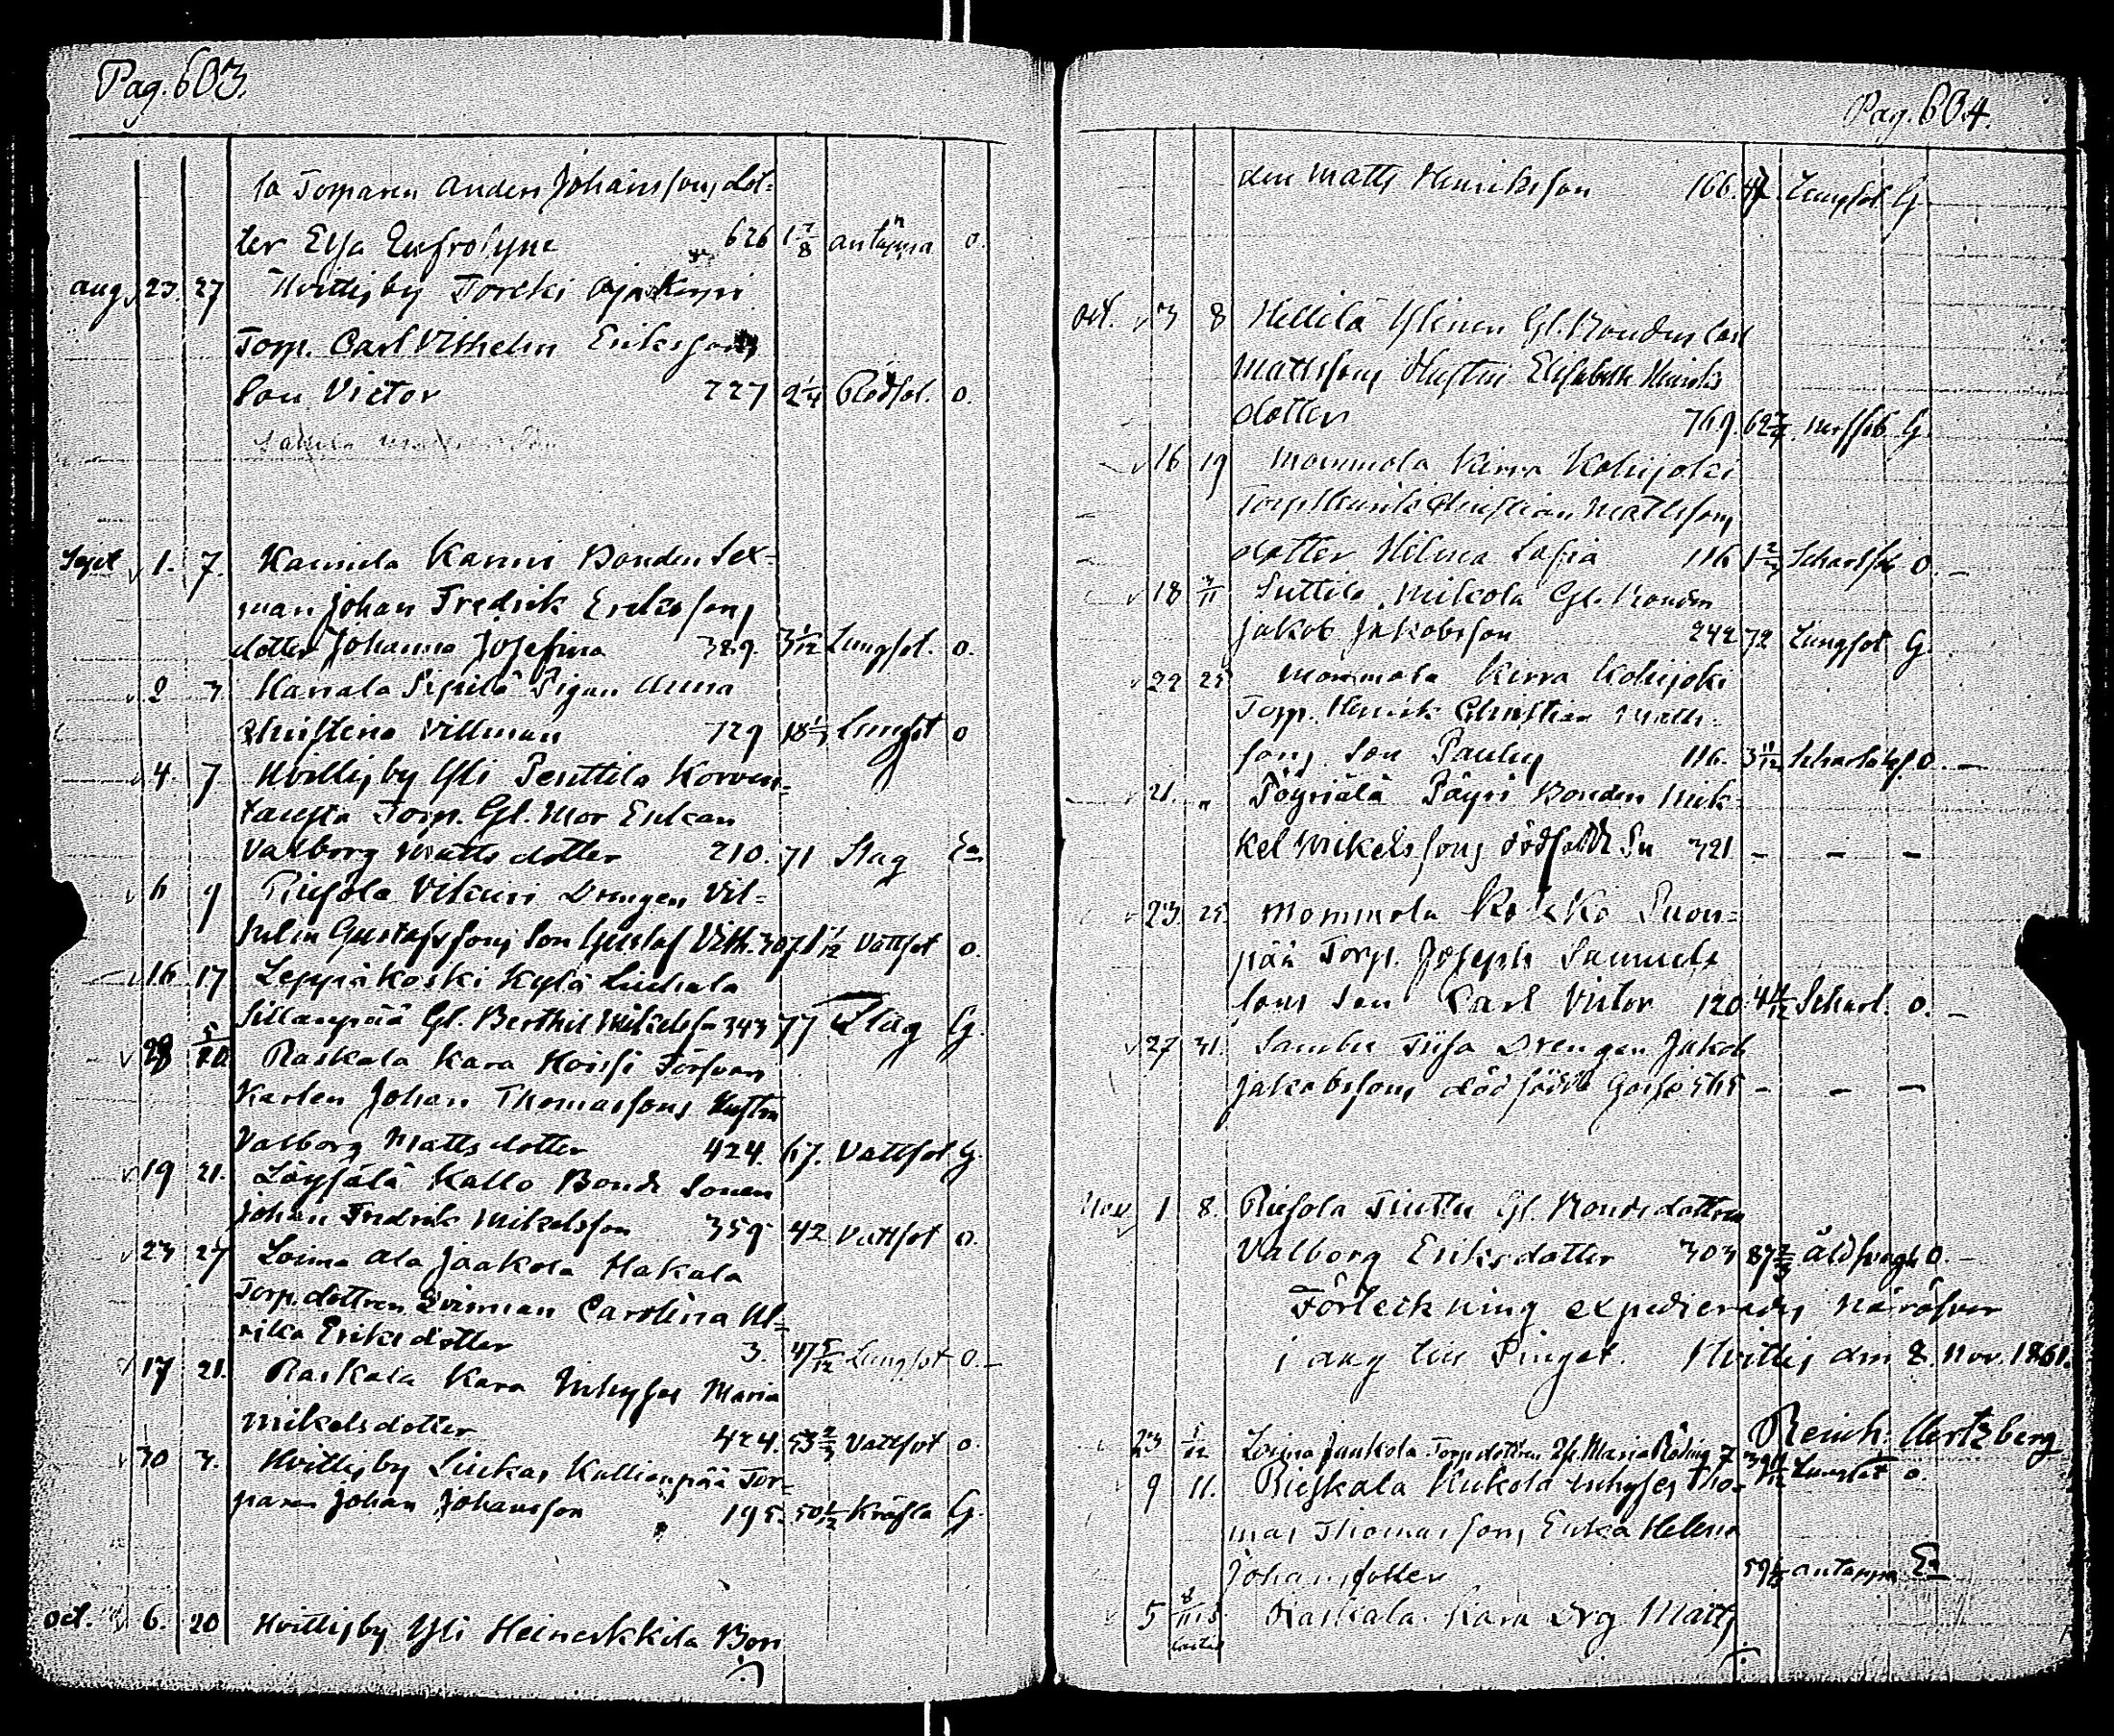 Pag. 603.
la Torparen Anders Johanssons dot-
ter Elsa Eufrosyne 626 1 7/8 antäppa o.
aug. 23. 27 Hvittisby Torcki Ojankorpi
Torp. Carl Vilhelm Erikssons
Son Victor 227 2 1/4 Rödsot. o.
Sept 1. 7. Karmela Karmi Bonden Sex-
man Johan Fredrik Erikssons
dotter Johanna Josefina 389. 3 1/12 Lungsot. o.
2 3 Hannala Sipilä Pigan Anna
Christina Villman 729 18 1/3 Lungsot o
4. 7 Hvittisby Yli Penttilä Korven-
tausta Torp. Gl. Mor Enkan
Valborg Matts dotter 210. 71 Slag En
6 9 Riesola Vikari Drengen Vil-
helm Gustafssons Son Gustaf Vilh. 307 1/12 Vattsot o.
16 17 Leppäkoski Kylä Liuhala
Sillanpää Gl. Berthil Mikelsson 343 77 Slag G.
28 5/10 Raskala Kara Hoissi Försvars
Karlen Johan Thomassons Hustru
Valborg Matts dotter 424. 67. Vattsot G.
19 21. Löysälä Kallo Bonde Sonen
Johan Fredrik Mikelsson 359 42 Vattsot o.
23 27 Loima Ala Jaakola Hakala
Torp. dottren Qvinnan Carolina Ul-
rika Eriksdotter 3. 47 5/12 Lungsot o.
17 21. Raskala Kara Inhyses Maria
Mikelsdotter 424. 53 2/3 Vattsot o.
30 3. Hvittisby Liukas Kallionpää Tor-
paren Johan Johansson 195. 50 1/2 Kräfta G.
Oct. 6. 20 Hvittisby Yli Heinerkkilä Bon
Pag. 604.
den Matts Henriksson 166. 47. Lungsot G
Oct. 3 8 Hellilä Ylinen Gl. Bonden Carl
Mattssons Hustru Elisabeth Henriks
dotter 769. 62 G
16 19 Mommola Kirra Kohijoki
Torp. Henrik Christian Mattssons
dotter Helena Sofia 116 1 2/3 Scharlsfeb. O.
18 3/11 Suttila Mikola Gl. Bonden
Jakob Jakobsson 242 72 Lungsot G.
22 25 Mommola Kirra Kohijoki
Torp. Henrik Christian Matts-
sons Son Paulus 116. 3 11/12 Scharlakf. O.
21. " Pöyriälä Päyri Bonden Mik-
kel Mikelssons dödfödde Son 321 - - -
23. 25. Mommola Kouko Suon-
pää Torp. Joseph Samuels
sons Son Carl Victor 120. Scharl. o.
27 31. Sambu Tiisa Drengen Jakob
Jakobssons dödfödde Gosse 515 - - -
Nov. 1 8. Riesola Tiuttu Gl. Bonde dottren
Valborg Eriksdotter 303 87 2/3 åld. O.
Förteckning expedierades häröfver
i dag till Tinget. Hvittis den 8. Nov. 1861.
Reinh. Hertzberg
23 1/12 Loima Jaakola Torp. dottren Maria 7 Lungsot o.
9 11. Rieskala Hukola Inhyses Tho-
mas Thomassons Enka Helena
Johansdotter 59 1/2 antäppa En
5 8/11 Raskala Kara Drg. Matts